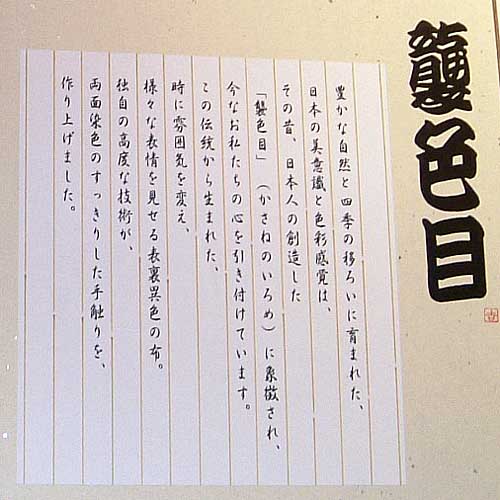 襲色目
豊かな自然と四季の移ろいに育まれた、
日本の美意識と色彩感覚は、
その昔、日本人の創造した
「襲色目」（かさねのいろめ）に象徴され、
今なお私たちの心を引き付けています。
この伝統から生まれた、
時に雰囲気を変え、
様々な表情を見せる表裏異色の布。
独自の高度な技術が、
両面染色のすっきりした手触りを、
作り上げました。